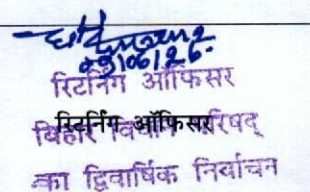 09/06/26.
रिटर्निंग ऑफिसर
रिटर्निंग ऑफिसर
बिहार विधान परिषद्
का द्विवार्षिक निर्वाचन